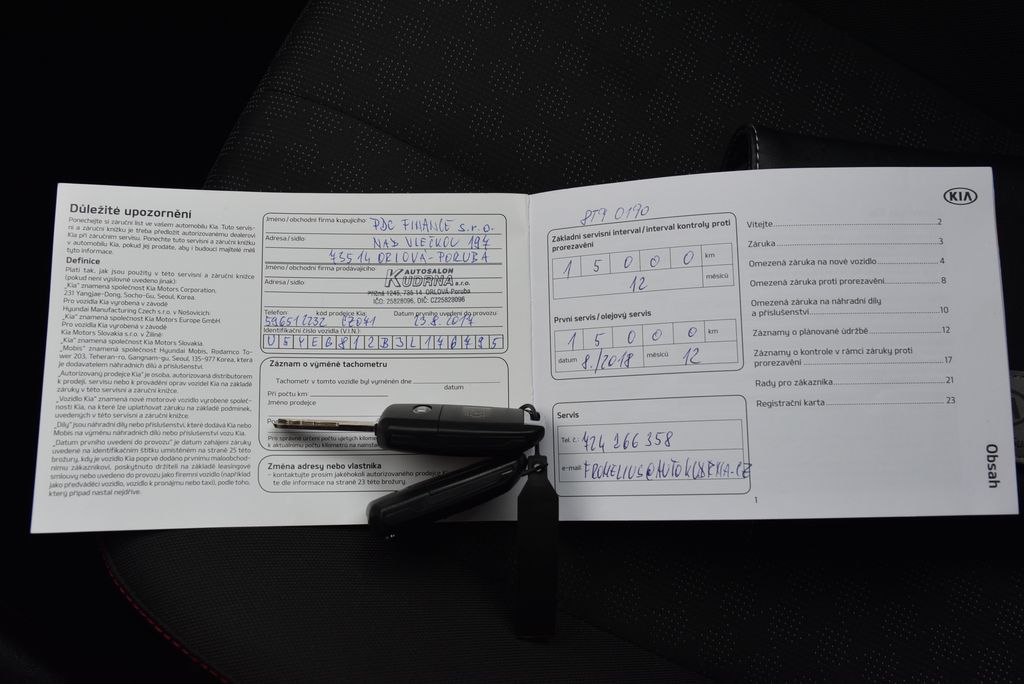 Důležité upozornění
Ponechejte si záruční list ve vašem automobilu Kia. Tuto servis-
ní a záruční knížku je třeba předložit autorizovanému dealerovi
Kia při záručním servisu. Ponechte tuto servisní a záruční knížku
v automobilu Kia, pokud jej prodáte, aby i budoucí majitelé měli
tyto informace.
Definice
Platí tak, jak jsou použity v této servisní a záruční knížce
(pokud není výslovně uvedeno jinak):
„Kia" znamená společnost Kia Motors Corporation,
231 Yangjae-Dong, Socho-Gu, Seoul, Korea.
Pro vozidla Kia vyrobená v závodě
Hyundai Manufacturing Czech s.r.o. v Nošovicích:
„Kia" znamená společnost Kia Motors Europe GmbH.
Pro vozidla Kia vyrobená v závodě
Kia Motors Slovakia s.r.o. v Žilině:
„Kia" znamená společnost Kia Motors Slovakia.
„Mobis" znamená společnost Hyundai Mobis, Rodamco To-
wer 203, Teheran-ro, Gangnam-gu, Seoul, 135-977 Korea, která
je dodavatelem náhradních dílů a příslušenství.
„Autorizovaný prodejce Kia" je osoba, autorizovaná distributorem
k prodeji, servisu nebo k provádění oprav vozidel Kia na základě
záruky v této servisní a záruční knížce.
„Vozidlo Kia" znamená nové motorové vozidlo vyrobené společ-
ností Kia, na které lze uplatňovat záruku na základě podmínek,
uvedených v této servisní a záruční knížce.
„Díly" jsou náhradní díly nebo příslušenství, které dodává Kia nebo
Mobis na výměnu náhradních dílů nebo příslušenství vozu Kia.
„Datum prvního uvedení do provozu" je datum zahájení záruky
uvedené na identifikačním štítku umístěném na straně 25 této
brožury, kdy je vozidlo Kia poprvé dodáno prvnímu maloobchod-
nímu zákazníkovi, poskytnuto držiteli na základě leasingové
smlouvy nebo uvedeno do provozu jako firemní vozidlo (například
jako předváděcí vozidlo, vozidlo k pronájmu nebo taxi), podle toho,
který případ nastal nejdříve.
Jméno/obchodní firma kupujícího: PDC FINANCE s.r.o.
Adresa/sídlo: NAD VLEČKOU 194
735 14 ORLOVÁ-PORUBA
Jméno/obchodní firma prodávajícího
AUTOSALON
KUDRNA s.r.o.
Adresa/sídlo:
Příčná 1245, 735 14 ORLOVÁ-Poruba
IČO: 25828096, DIČ: CZ25828096
Telefon: kód prodejce Kia Datum prvního uvedení do provozu
596512232 CZ041 23.8.2017
Identifikační číslo vozidla (V.I.N.):
U5YEG812B3L146495
Záznam o výměně tachometru
Tachometr v tomto vozidle byl vyměněn dne
datum
Při počtu km
Jméno prodejce
Pro správné určení počtu ujetých kilome
k aktuálnímu počtu kilometrů na nainsta
Změna adresy nebo vlastníka
- kontaktujte prosím jakéhokoli autorizovaného prodejce K
te dle informace na straně 23 této brožury.
8T9 0190
Základní servisní interval/interval kontroly proti
prorezavění
1 5 0 0 0 km
12 měsíců
První servis/olejový servis
1 5 0 0 0 km
datum 8./2018 měsíců 12
Servis
Tel. č.: 724 166 358
e-mail: FROMELIUS@AUTOKUDRNA.CZ
1
KIA
Vítejte 2
Záruka 3
Omezená záruka na nové vozidlo 4
Omezená záruka proti prorezavění 8
Omezená záruka na náhradní díly
a příslušenství 10
Záznamy o plánované údržbě 12
Záznamy o kontrole v rámci záruky proti
prorezavění 17
Rady pro zákazníka 21
Registrační karta 23
Obsah